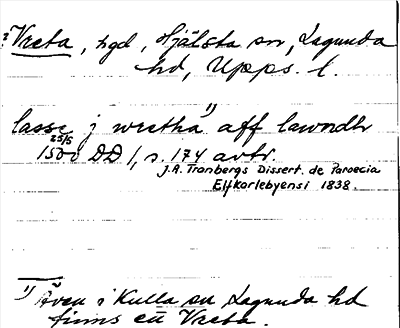 ? Vreta, hgd, Hjälsta sn, Lagunda
hd, Upps. l.
lasse j wretha 1) aff lawndh
25/5 1500 DD 1, s. 174 avtr.
J.A. Tranbergs Dissert. de Paroecia
Elfkarlebyensi 1838.
1) Även i Kulla sn Lagunda hd
finns ett Vreta.